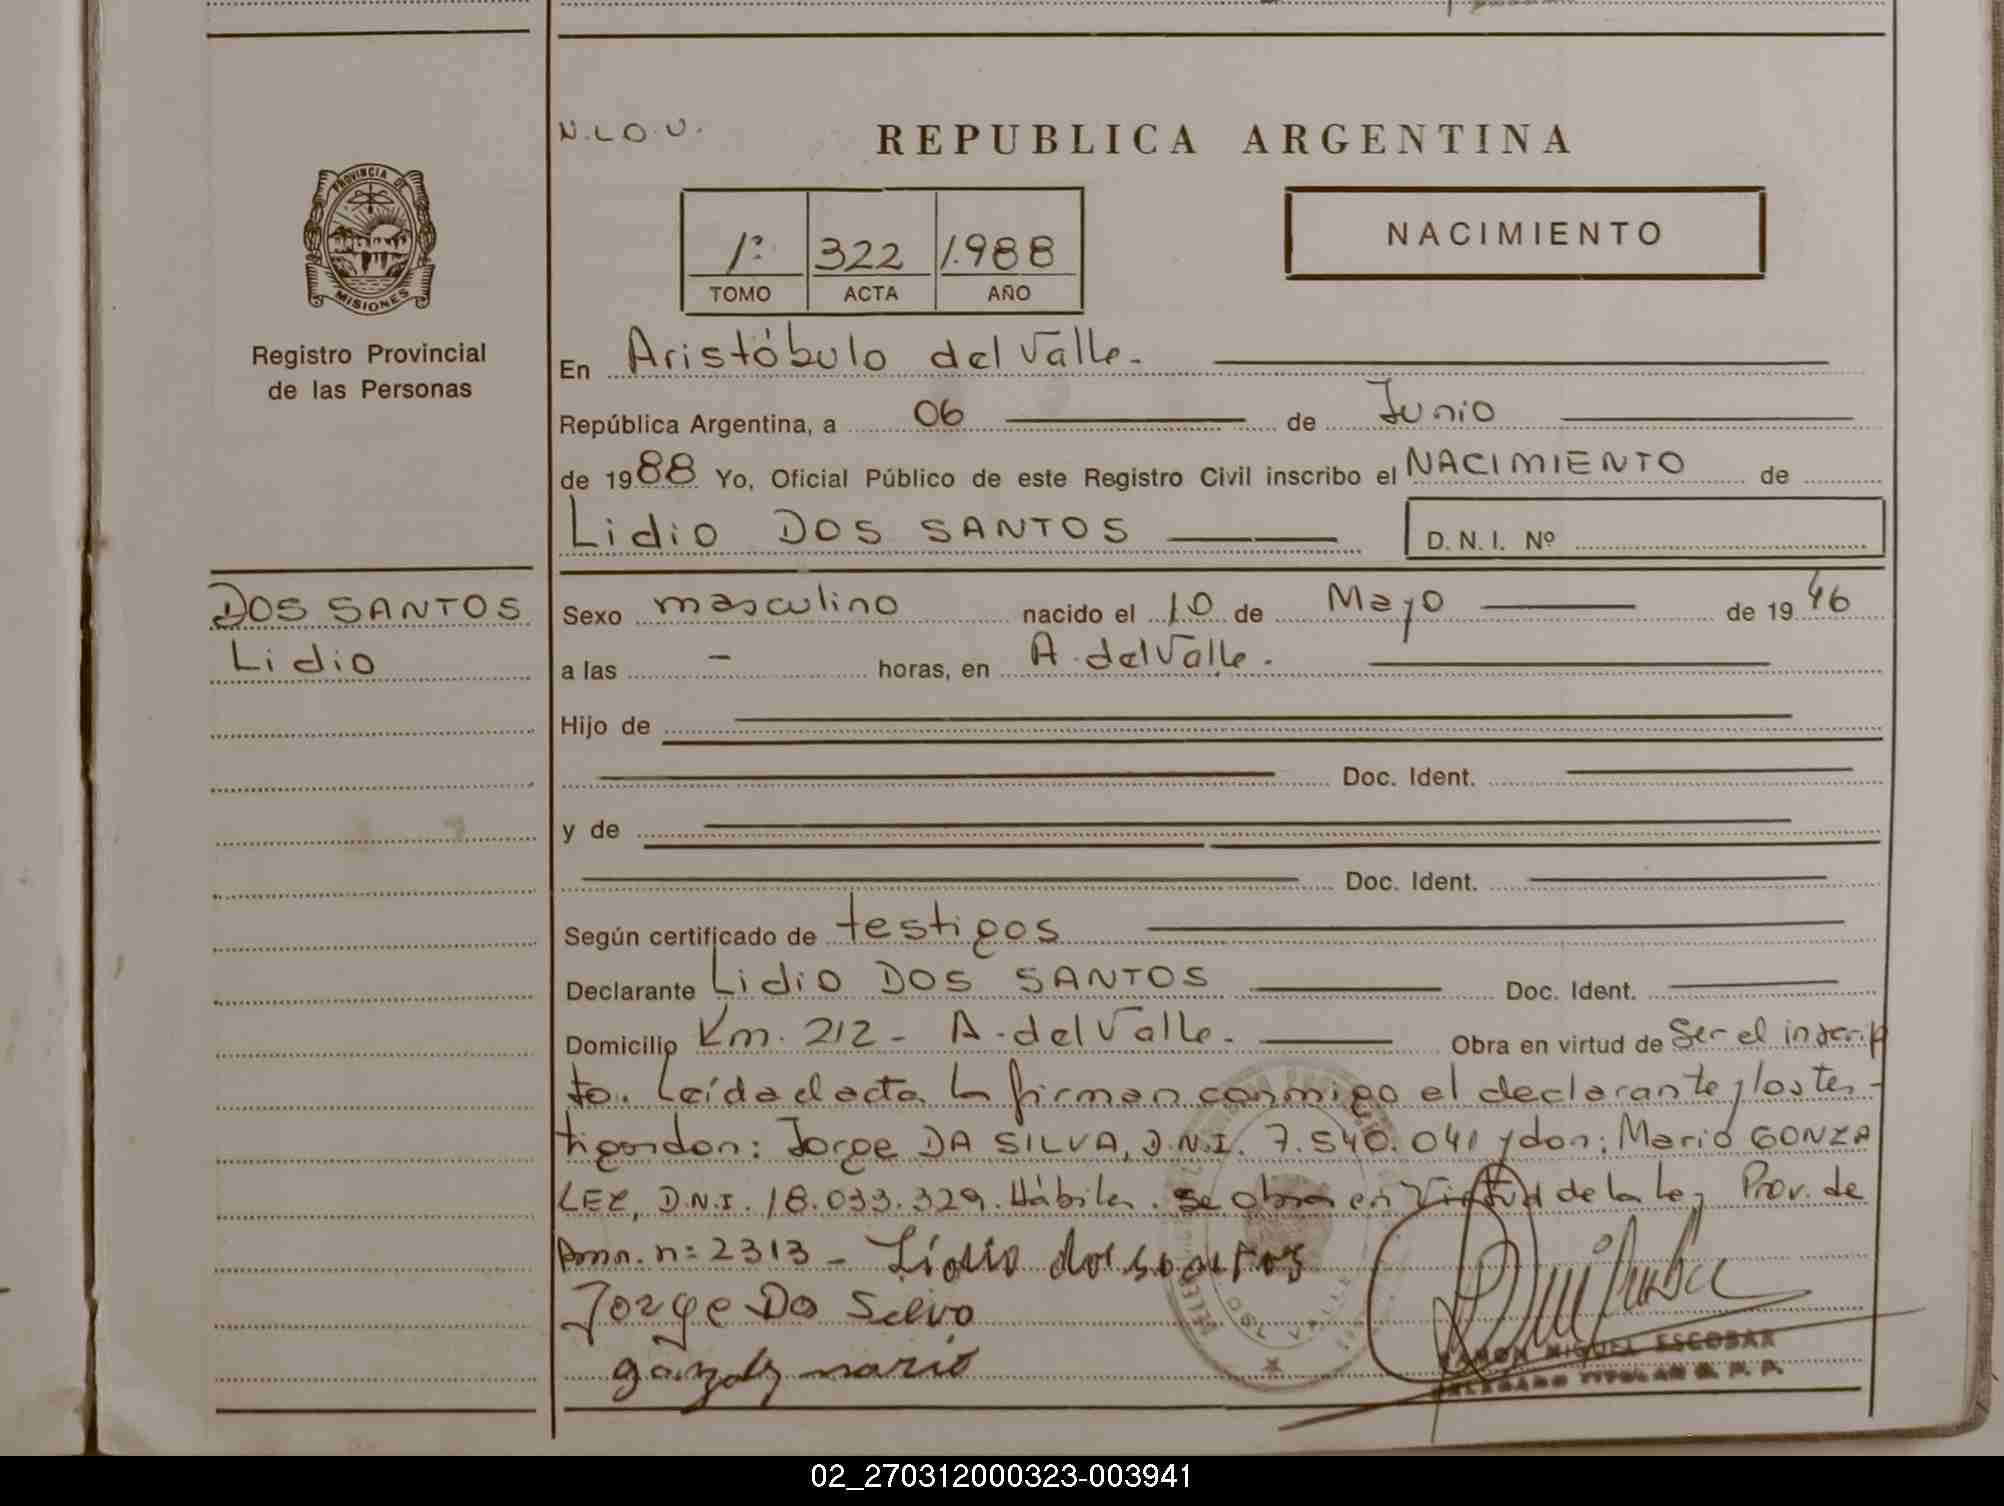 N.L.O.U.
REPUBLICA ARGENTINA
PROVINCIA DE
MISIONES
1º 322 1.988
TOMO ACTA AÑO
NACIMIENTO
Registro Provincial
de las Personas
En Aristóbulo del Valle.
República Argentina, a 06 de Junio
de 1988 Yo, Oficial Público de este Registro Civil inscribo el NACIMIENTO de
Lidio DOS SANTOS D.N.I. Nº
DOS SANTOS
Lidio
Sexo masculino nacido el 10 de Mayo de 1946
a las - horas, en A. del Valle.
Hijo de
Doc. Ident.
y de
Doc. Ident.
Según certificado de testigos
Declarante Lidio DOS SANTOS Doc. Ident.
Domicilio Km. 212 - A. del Valle. Obra en virtud de ser el inscrip
to. Leída el acta la firman conmigo el declarante y los tes-
tigos don: Jorge DA SILVA, D.N.I. 7.540.041 y don: Mario GONZA
LEZ, D.N.I. 18.033.329. Hábiles. se obra en virtud de la Ley Prov. de
Amn. nº 2313 - Lidio dos santos
Jorge Da Silva
gonzalez mario
RAMON MIGUEL ESCOBAR
DELEGADO TITULAR R. P. P.
02_270312000323-003941